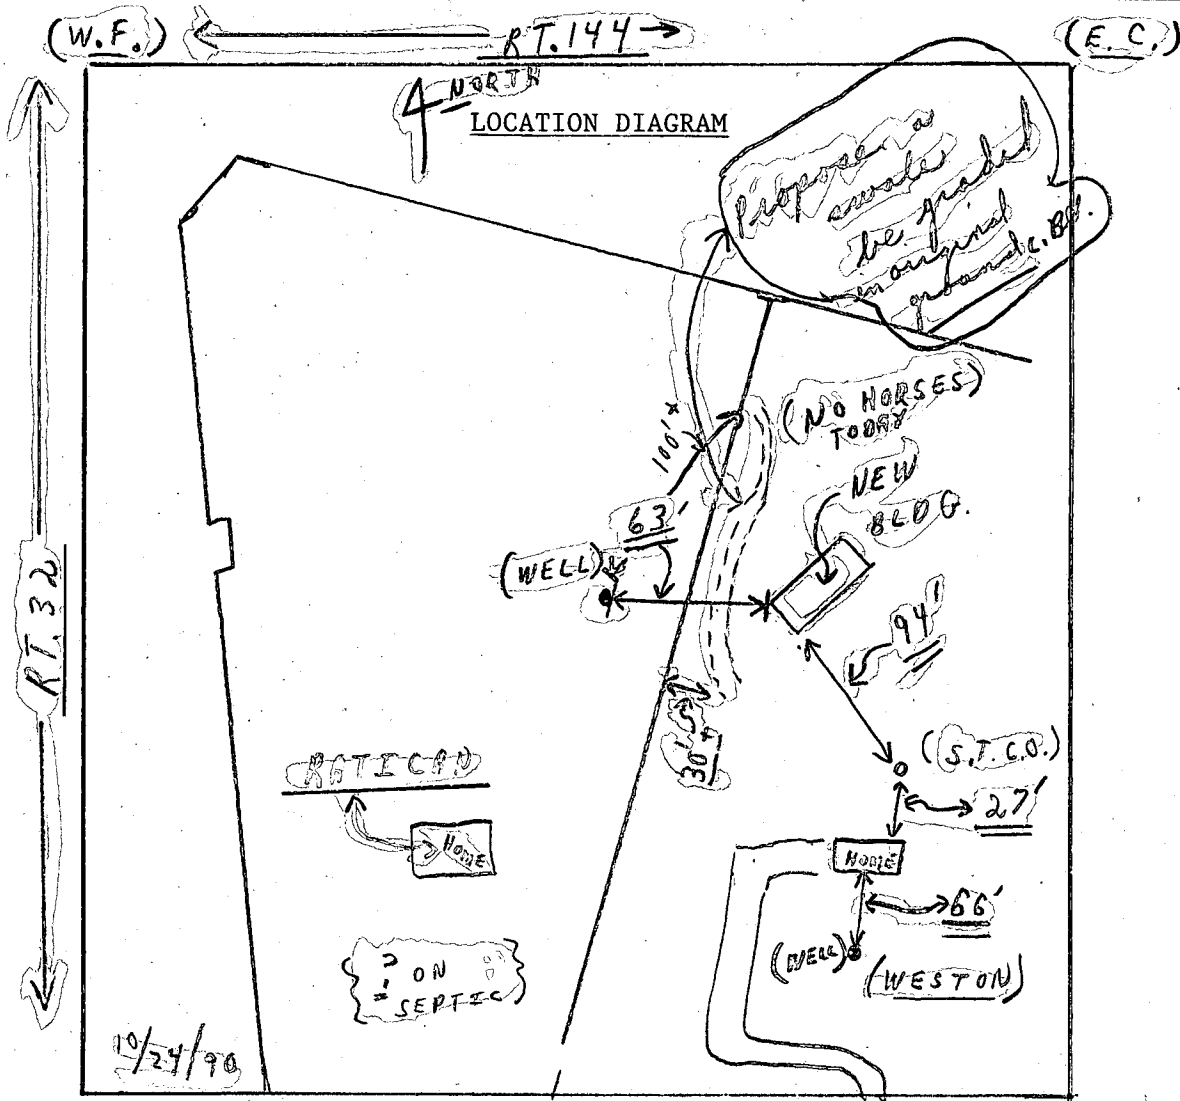 (W.F.) RT.144 (E.C.)
NORTH
LOCATION DIAGRAM
Propose a
swale
be graded
in original
ground C.B.
(NO HORSES)
TODAY
100'±
NEW
BLDG.
63'
(WELL)
RT.32
94'
30'±
(S.T.C.O.)
27'
RATICAN
HOME
HOME
66'
(WELL)
(WESTON)
? ON
SEPTIC
10/24/90